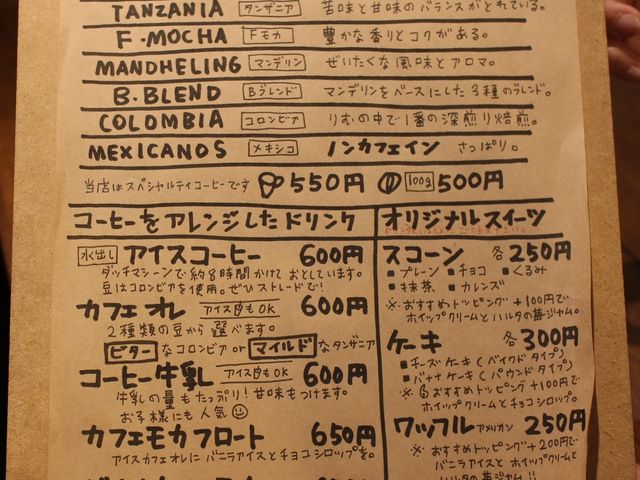 TANZANIA タンザニア 苦味と甘味のバランスがとれている。
F・MOCHA Fモカ 豊かな香りとコクがある。
MANDHELING マンデリン ぜいたくな風味とアロマ。
B.BLEND Bブレンド マンデリンをベースにした3種のブレンド。
COLOMBIA コロンビア りむの中で1番の深煎り焙煎。
MEXICANOS メキシコ ノンカフェイン さっぱり。
当店はスペシャルティコーヒーです 550円 100g 500円
コーヒーをアレンジしたドリンク
水出し アイスコーヒー 600円
ダッチマシーンで約8時間かけておとしています。
豆はコロンビアを使用。ぜひストレートで!
カフェオレ アイスもOK 600円
2種類の豆から選べます。
ビターなコロンビア or マイルドなタンザニア
コーヒー牛乳 アイスもOK 600円
牛乳の量もたっぷり!甘味もつけます。
お子様にも人気
カフェモカフロート 650円
アイスカフェオレにバニラアイスとチョコシロップを。
オリジナルスイーツ
スコーン 各250円
■プレーン ■チョコ ■くるみ
■抹茶 ■カレンズ
※おすすめトッピング+100円で
ホイップクリームとハルタの苺ジャム。
ケーキ 各300円
■チーズケーキ(ベイクドタイプ)
■バナナケーキ(パウンドタイプ)
※おすすめトッピング+100円で
ホイップクリームとチョコシロップ。
ワッフル アメリカン 250円
※おすすめトッピング+200円で
バニラアイスとホイップクリームと
ハルタの苺ジャム!!